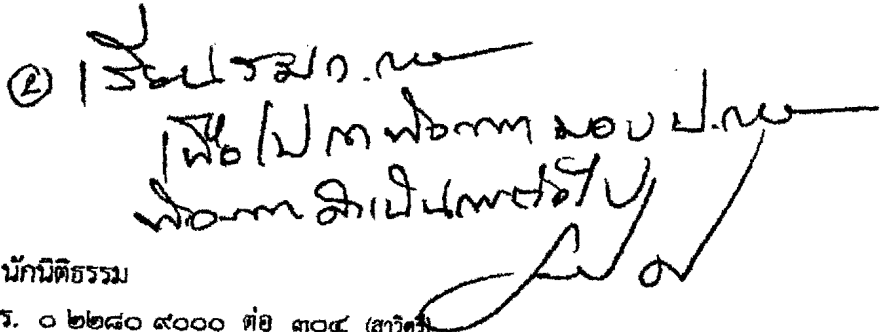 ② เรียน รมว.กษ
เพื่อโปรดพิจารณา มอบ ป.กษ
พิจารณาดำเนินการต่อไป
นักนิติธรรม
ร. ๐ ๒๒๘๐ ๙๐๐๐ ต่อ ๓๐๔ (สาวิตรี)